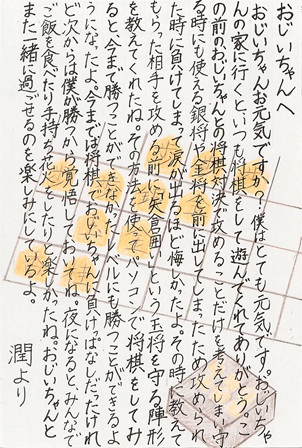 おじいちゃんへ
おじいちゃんお元気ですか？僕はとても元気です。おじいちゃ
んの家に行くといつも将棋をして遊んでくれてありがとう。こ
の前のおじいちゃんとの将棋対決で攻めることだけを考えてしまい守
る時にも使える銀将や金将を前に出してしまったため攻められ
た時に負けてしまって涙が出るほど悔しかったよ。その時に教え
もらった相手を攻める前に「穴熊囲い」という玉将を守る陣形
を教えてくれたね。その方法を使ってパソコンで将棋をしてみ
ると、今まで勝つことができなかったレベルにも勝つことができるよ
うになったよ。今までは将棋でおじいちゃんに負けっぱなしだったけれ
ど次からは僕が勝つから覚悟しておいてね。夜になると、みんなで
ご飯を食べたり手持ち花火をしたりと楽しかったね。おじいちゃんと
また一緒に過ごせるのを楽しみにしているよ。
潤より